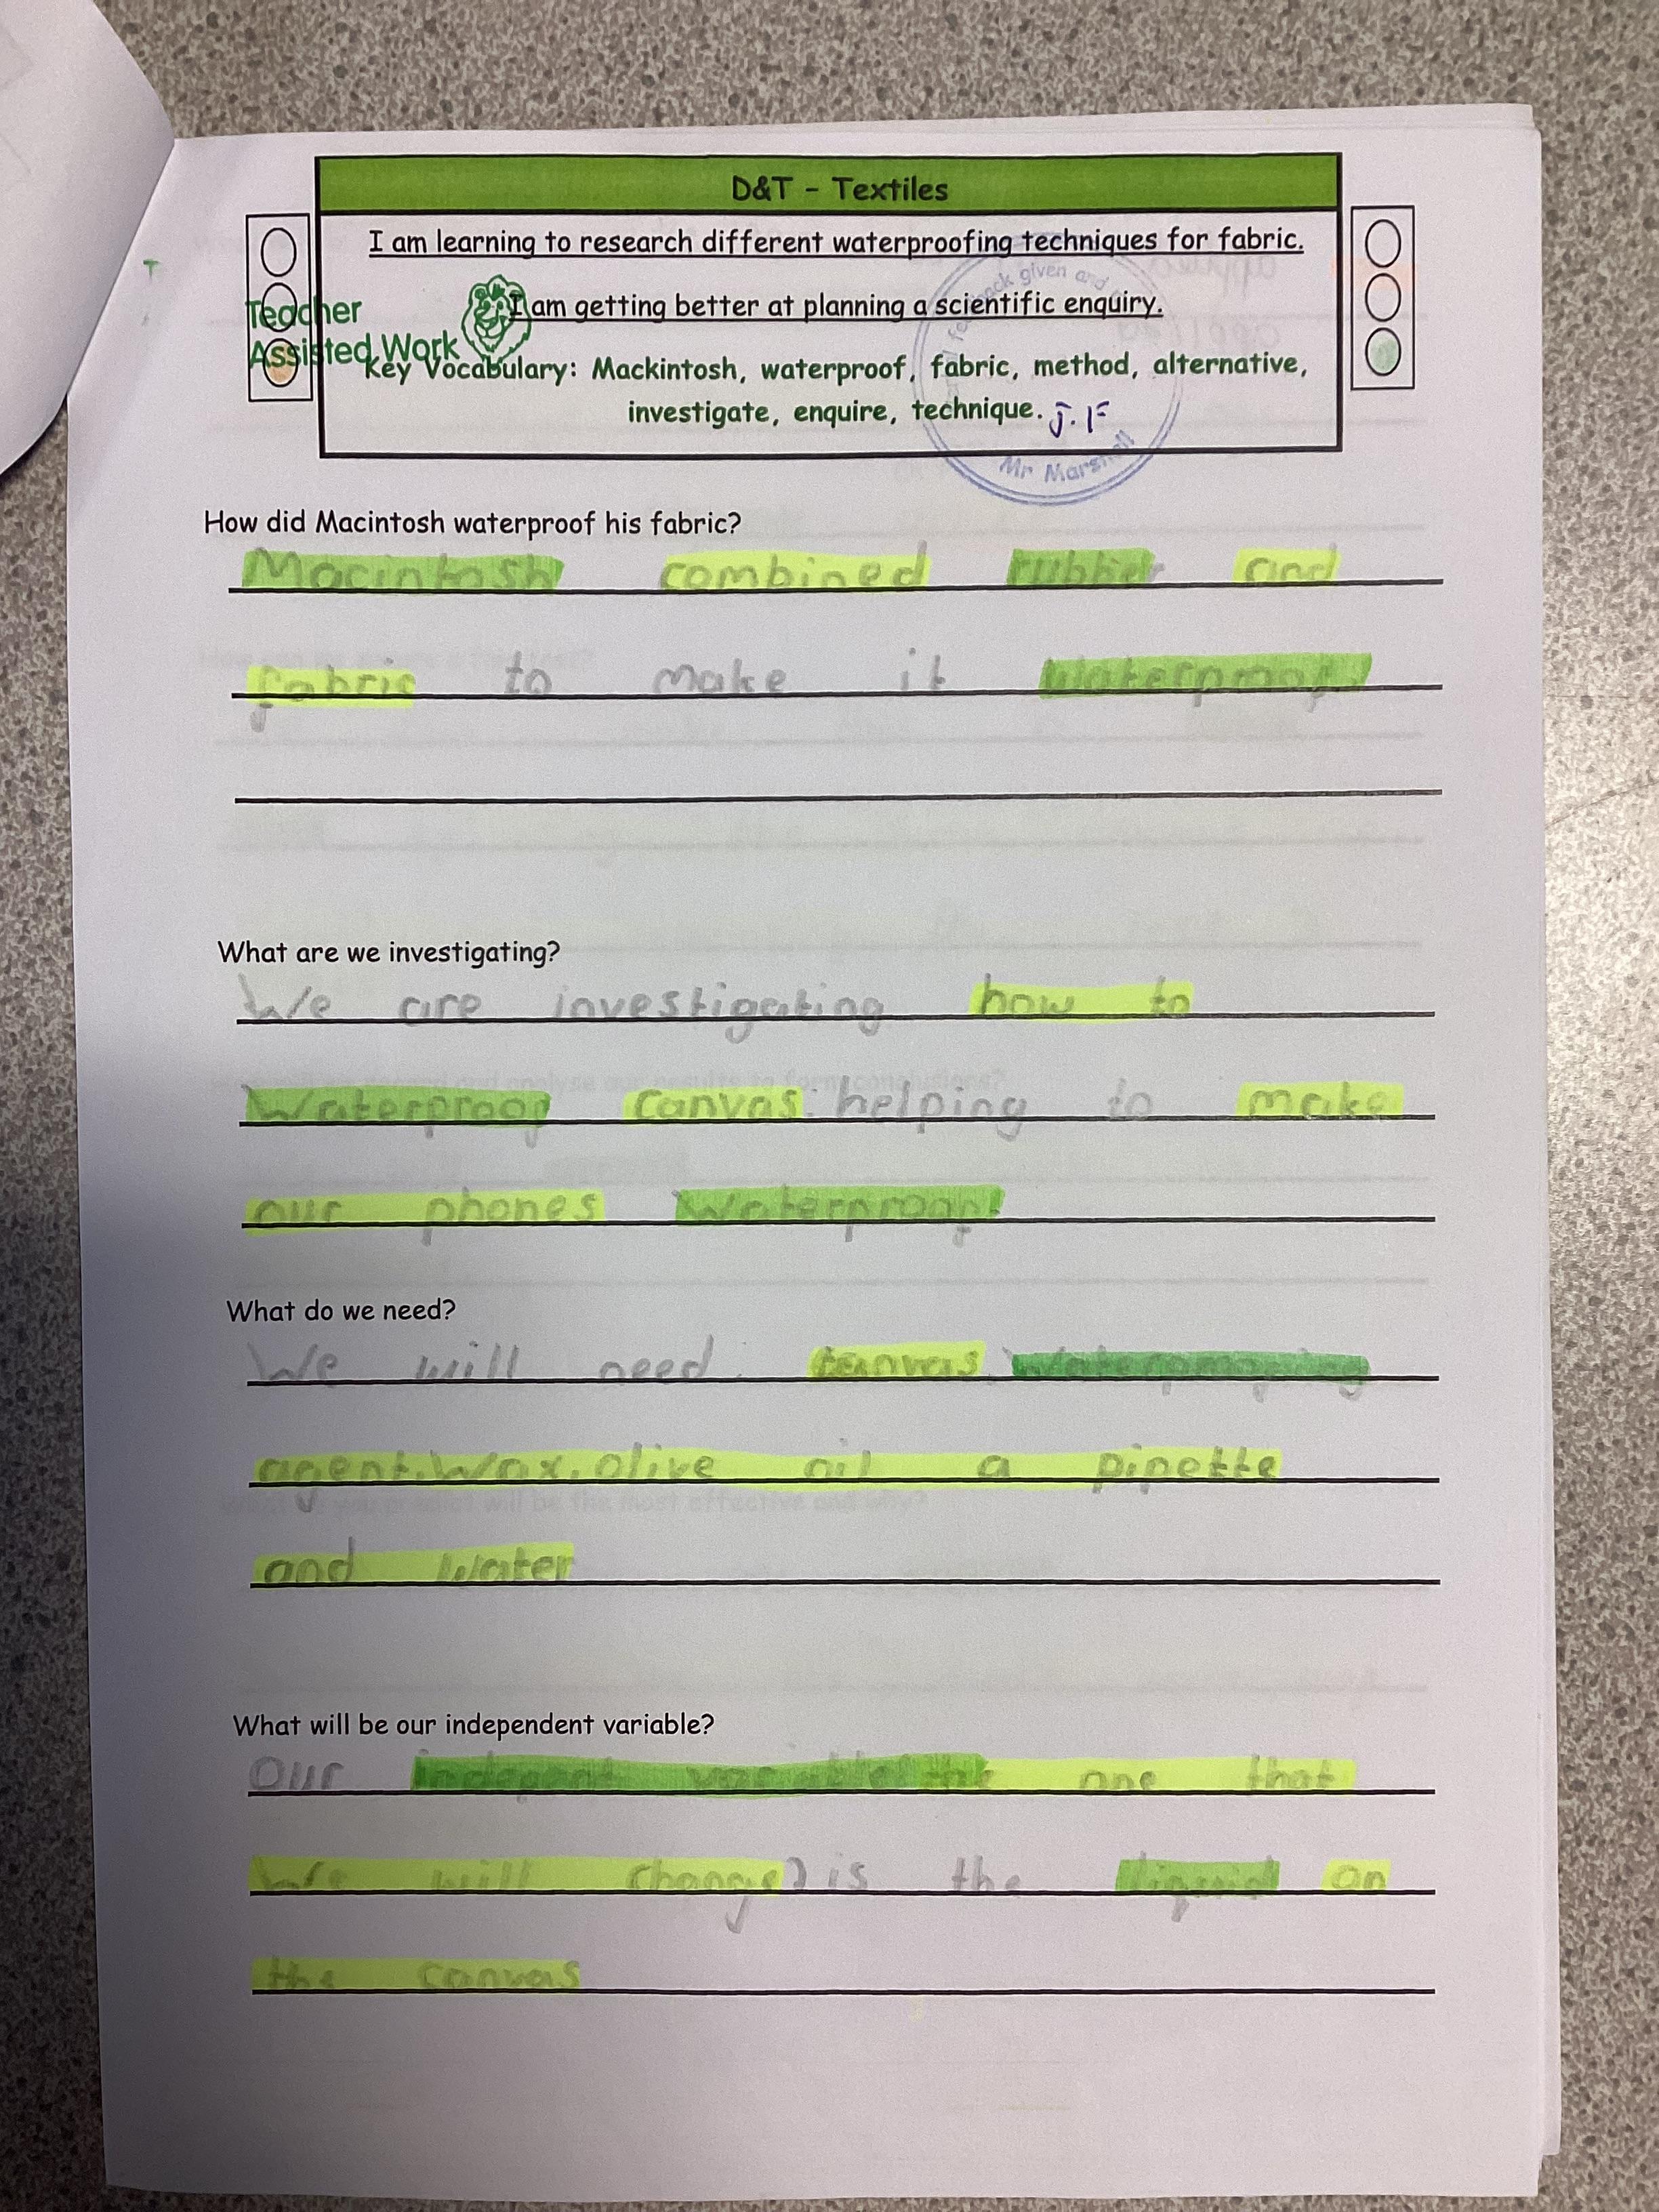 D&T - Textiles
I am learning to research different waterproofing techniques for fabric.
I am getting better at planning a scientific enquiry.
Teacher
Assisted Work
Key Vocabulary: Mackintosh, waterproof, fabric, method, alternative,
investigate, enquire, technique. J.F
Mr Marshall
How did Macintosh waterproof his fabric?
Macintosh combined rubber and
fabric to make it waterproof
What are we investigating?
We are investigating how to
Waterproof canvas. helping to make
our phones waterproof
What do we need?
We will need canvas, waterproofing
agent, wax, olive oil a pipette
and water
What will be our independent variable?
Our the one that
We will change) is the liquid on
the canvas